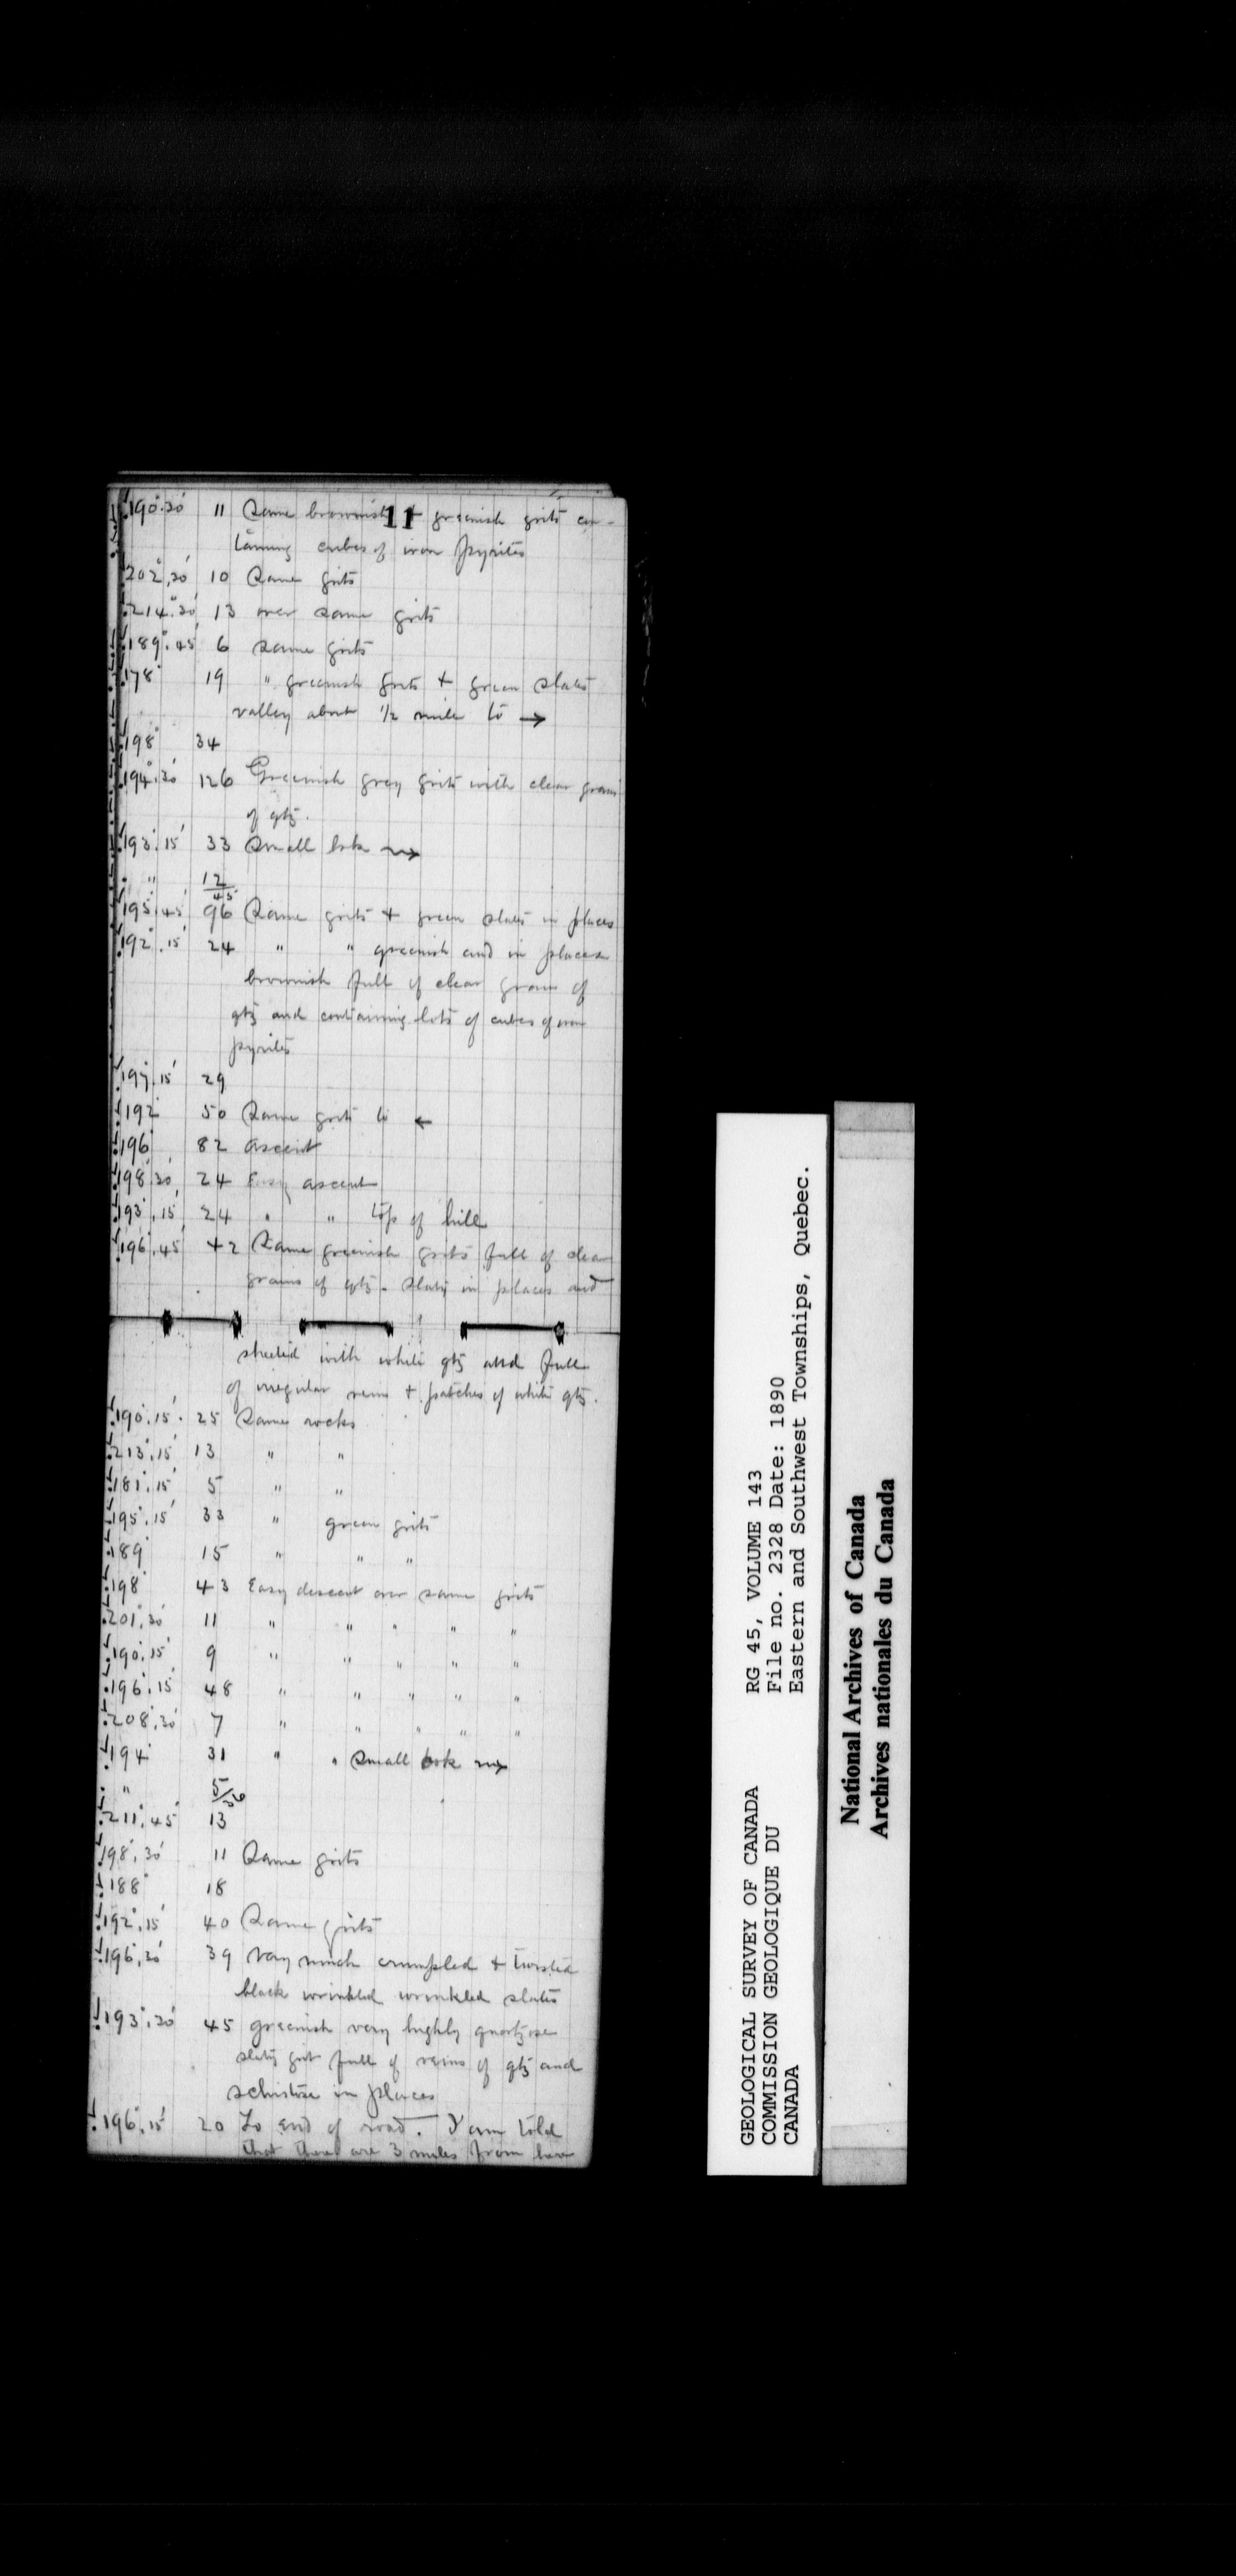 11
190°.30' 11 Same brownish + greenish grits con-
taining cubes of iron pyrites
202°.30' 10 Same grits
214°.30' 13 over same grits
189°.45' 6 same grits
178° 19 " greenish grits + green slates
valley about 1/2 mile to →
198° 34
194°.30' 126 Greenish grey grits with clear grains
of qtz.
193°.15' 33 Small brk →
" 12
45
195°.45' 96 Same grits + green slates in places
192°.15' 24 " " greenish and in places
brownish full of clear grains of
qtz and containing lots of cubes of iron
pyrites
197°.15' 29
192° 50 Same grits to ←
196° 82 ascent
198°.30' 24 Easy ascent
193°.15' 24 " " top of hill
196°.45' 42 Same greenish grits full of clear
grains of qtz. Slaty in places and
sheeted with white qtz and full
of irregular veins + patches of white qtz.
190°.15' 25 Same rocks
213°.15' 13 " "
181°.15' 5 " "
195°.15' 33 " green grits
189° 15 " " "
198° 43 Easy descent over same grits
201°.30' 11 " " " " "
190°.15' 9 " " " " "
196°.15' 48 " " " " "
208°.30' 7 " " " " "
194° 31 " " Small brk →
" 5
36
211°.45' 13
198°.30' 11 Same grits
188° 18
192°.15' 40 Same grits
196°.30' 39 Very much crumpled + twisted
black wrinkled wrinkled slates
193°.30' 45 greenish very highly quartzose
slaty grit full of veins of qtz and
schistose in places
196°.15' 20 To end of road. I am told
that there are 3 miles from here
GEOLOGICAL SURVEY OF CANADA
COMMISSION GEOLOGIQUE DU
CANADA
RG 45, VOLUME 143
File no. 2328 Date: 1890
Eastern and Southwest Townships, Quebec.
National Archives of Canada
Archives nationales du Canada